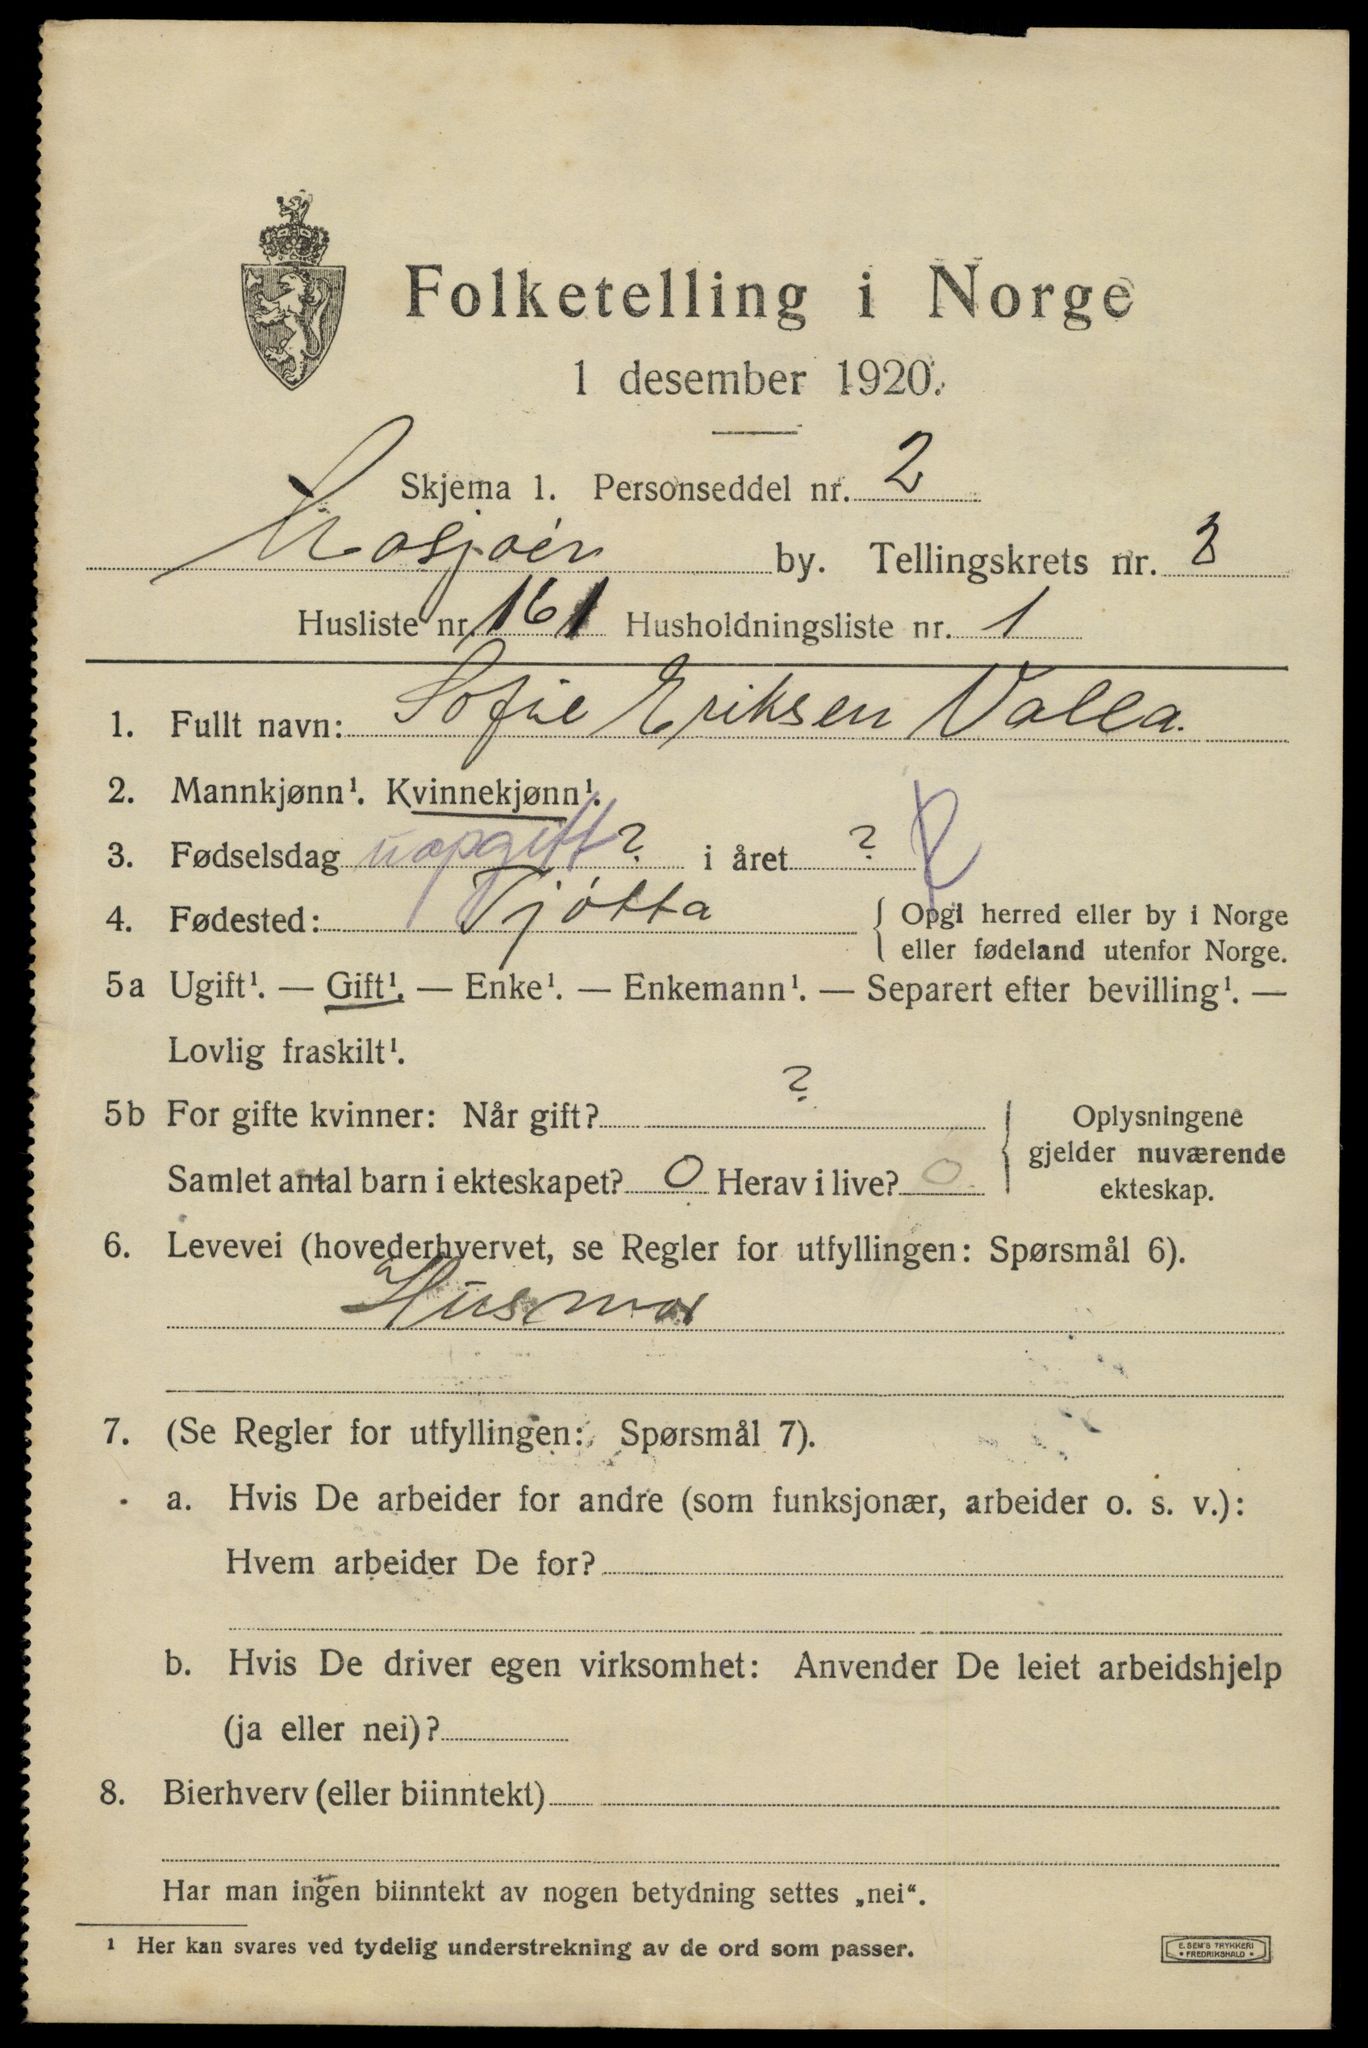 Folketelling i Norge
1 desember 1920.
Skjema 1. Personseddel nr. 2
Mosjøen by. Tellingskrets nr. 3
Husliste nr. 161 Husholdningsliste nr. 1
1. Fullt navn: Sofie Eriksen Valla.
2. Mannkjønn¹. Kvinnekjønn¹.
3. Fødselsdag uopgitt ? i året ?
4. Fødested: Tjøtta { Opgi herred eller by i Norge
eller fødeland utenfor Norge.
5a Ugift¹. — Gift¹. — Enke¹. — Enkemann¹. — Separert efter bevilling¹. —
Lovlig fraskilt¹.
5b For gifte kvinner: Når gift? ? { Oplysningene
gjelder nuværende
Samlet antal barn i ekteskapet? 0 Herav i live? 0 ekteskap.
6. Levevei (hovederhvervet, se Regler for utfyllingen: Spørsmål 6).
Husmor
7. (Se Regler for utfyllingen: Spørsmål 7).
a. Hvis De arbeider for andre (som funksjonær, arbeider o. s. v.):
Hvem arbeider De for?
b. Hvis De driver egen virksomhet: Anvender De leiet arbeidshjelp
(ja eller nei)?
8. Bierhverv (eller biinntekt)
Har man ingen biinntekt av nogen betydning settes „nei“.
¹ Her kan svares ved tydelig understrekning av de ord som passer.
E. SEM'S TRYKKERI
* FREDRIKSHALD *